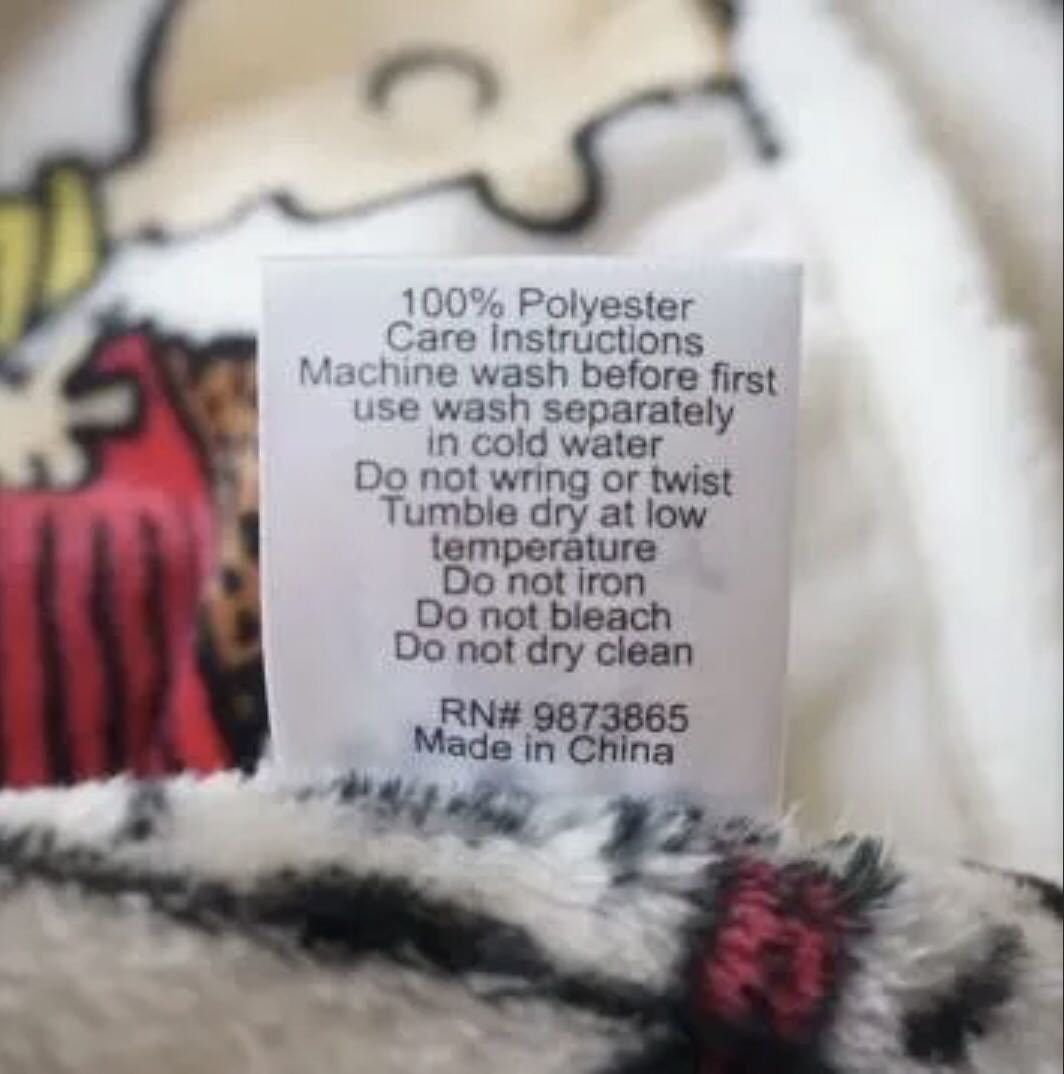 100% Polyester
Care Instructions
Machine wash before first
use wash separately
in cold water
Do not wring or twist
Tumble dry at low
temperature
Do not iron
Do not bleach
Do not dry clean
RN# 9873865
Made in China